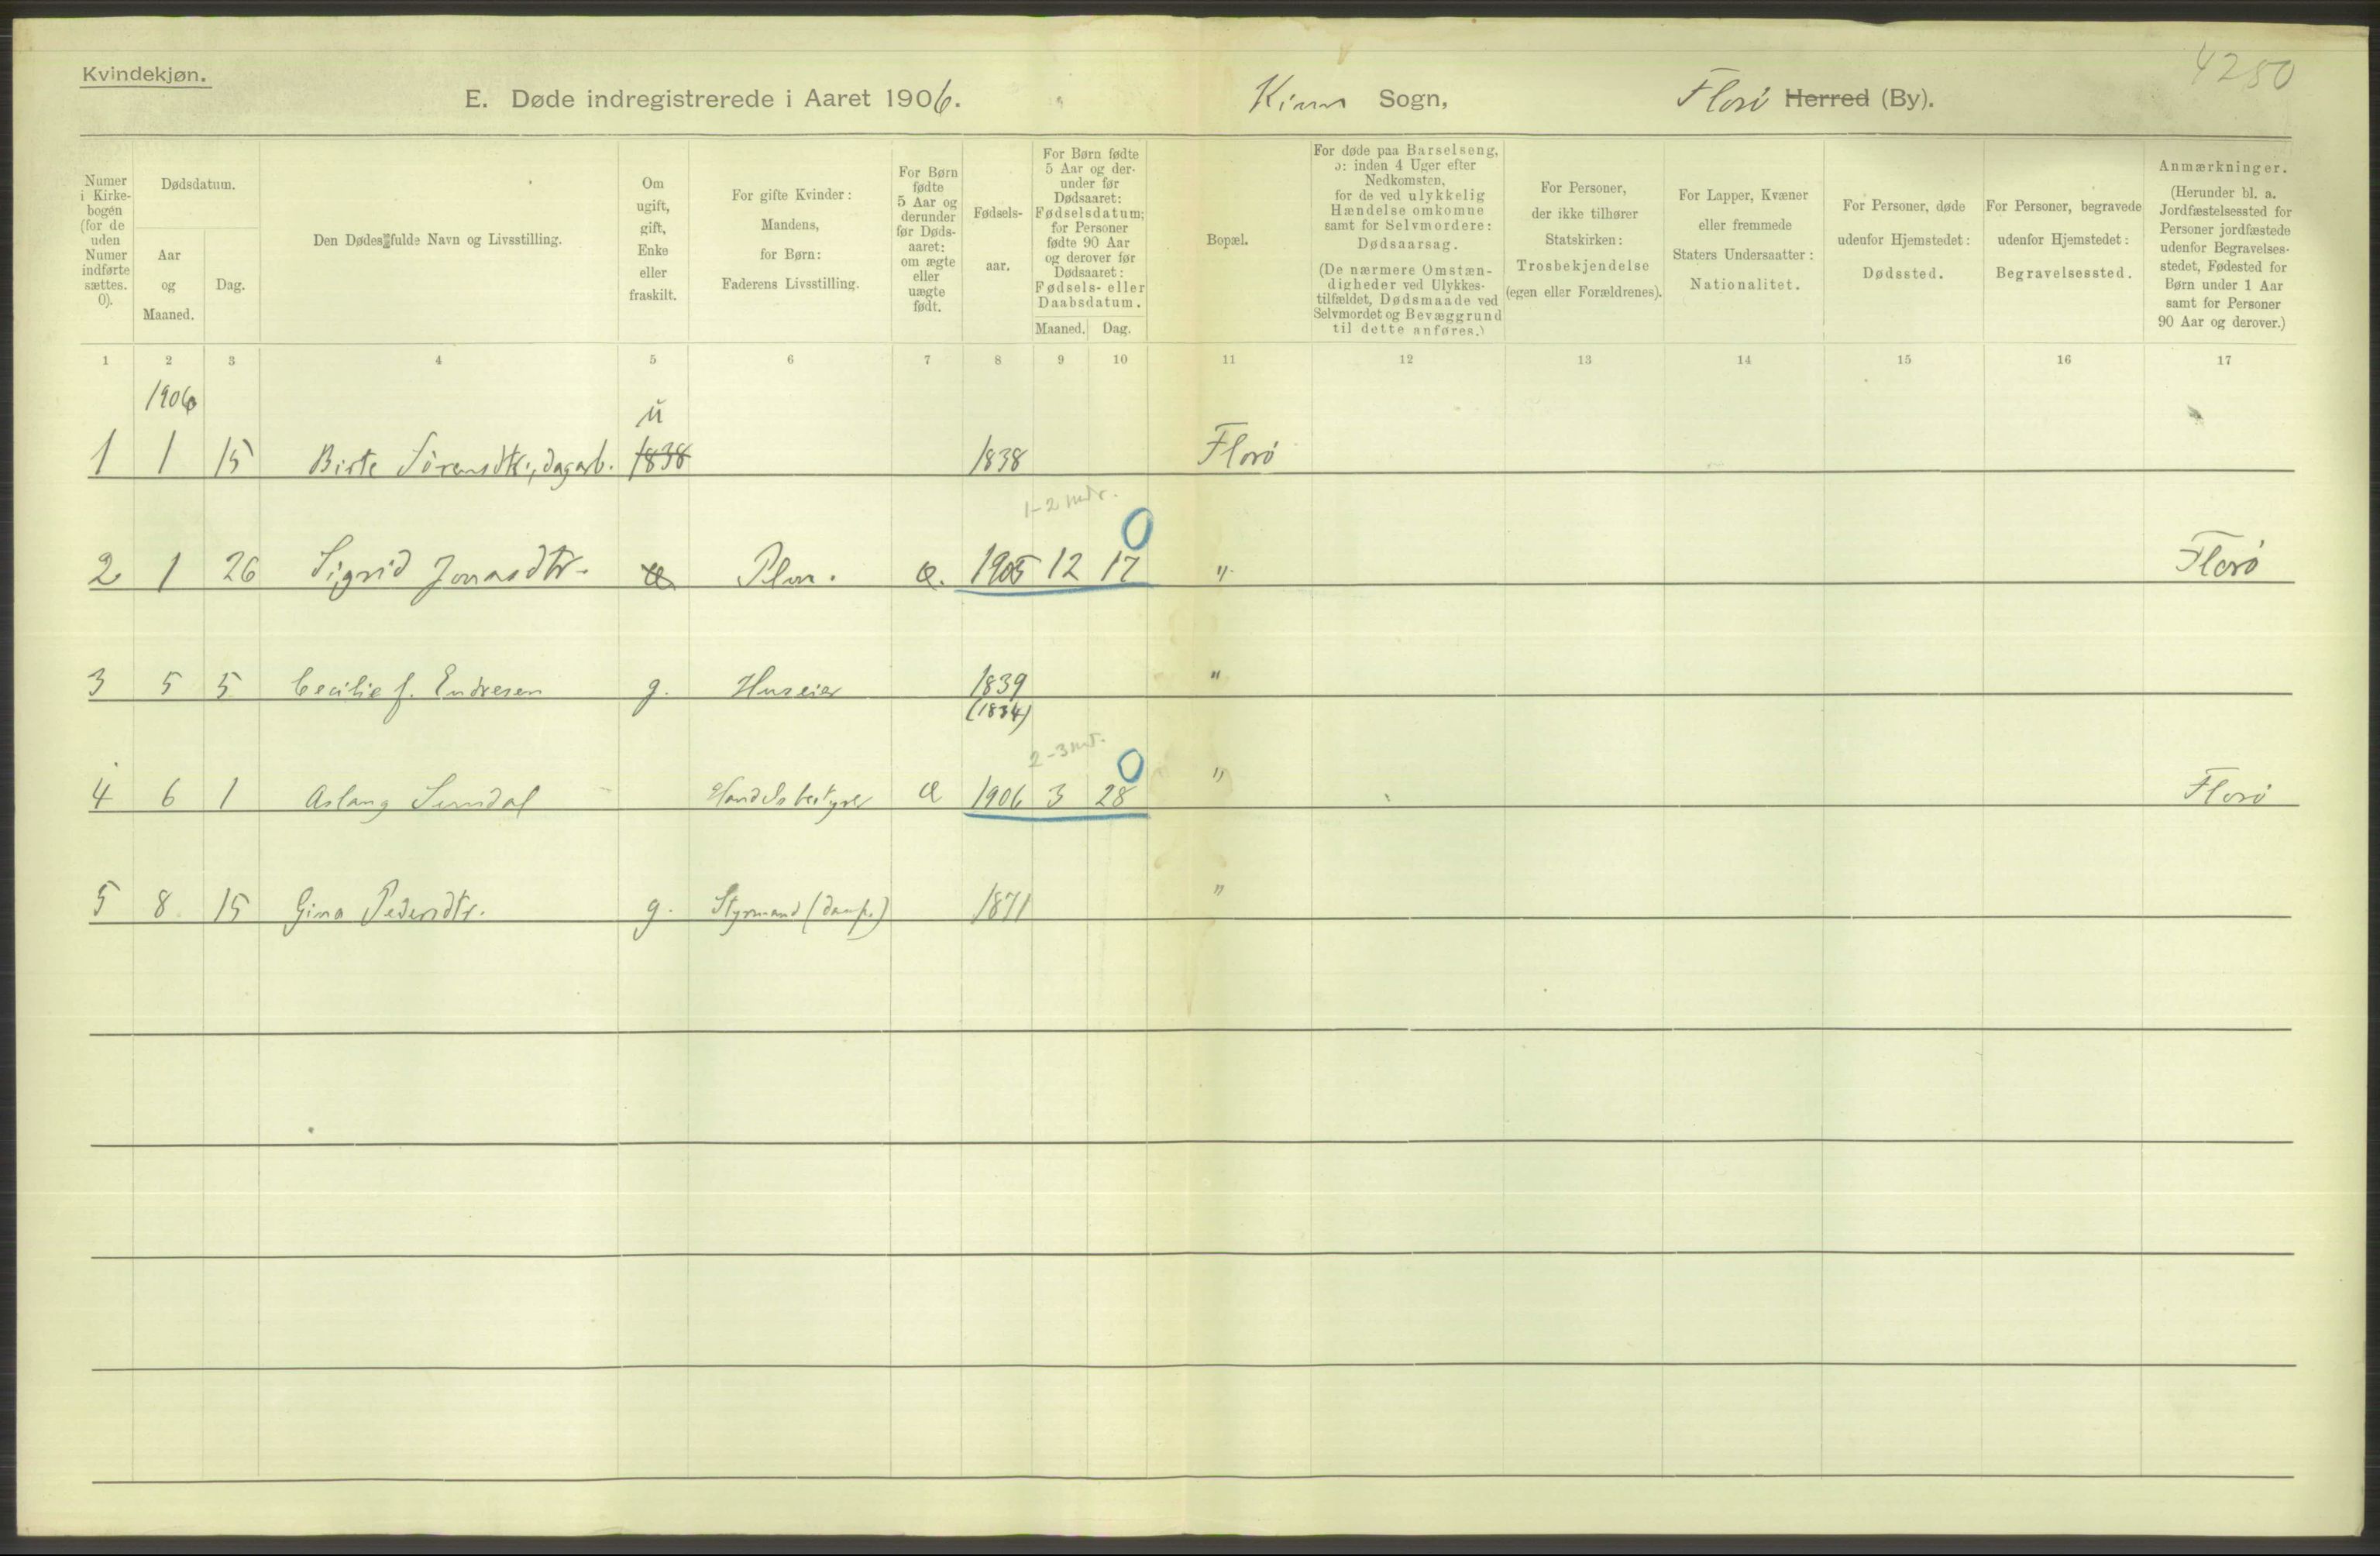 Kvindekjøn.
4250
E. Døde indregistrerede i Aaret 1906. Kinn Sogn, Florø Herred (By).
Numer i Kirkebogen (for de uden Numer indførte sættes. 0).
Dødsdatum.
Aar og Maaned.
Dag.
Den Dødes fulde Navn og Livsstilling.
Om ugift, gift, Enke eller fraskilt.
For gifte Kvinder: Mandens, for Børn: Faderens Livsstilling.
For Børn fødte 5 Aar og derunder før Dødsaaret: om ægte eller uægte født.
Fødselsaar.
For Børn fødte 5 Aar og derunder før Dødsaaret: Fødselsdatum; for Personer fødte 90 Aar og derover før Dødsaaret: Fødsels- eller Daabsdatum.
Maaned. Dag.
Bopæl.
For døde paa Barselseng, ɔ: inden 4 Uger efter Nedkomsten, for de ved ulykkelig Hændelse omkomne samt for Selvmordere: Dødsaarsag. (De nærmere Omstændigheder ved Ulykkestilfældet, Dødsmaade ved Selvmordet og Bevæggrund til dette anføres.)
For Personer, der ikke tilhører Statskirken: Trosbekjendelse (egen eller Forældrenes).
For Lapper, Kvæner eller fremmede Staters Undersaatter: Nationalitet.
For Personer, døde udenfor Hjemstedet: Dødssted.
For Personer, begravede udenfor Hjemstedet: Begravelsessted.
Anmærkninger. (Herunder bl. a. Jordfæstelsessted for Personer jordfæstede udenfor Begravelsesstedet, Fødested for Børn under 1 Aar samt for Personer 90 Aar og derover.)
1 2 3 4 5 6 7 8 9 10 11 12 13 14 15 16 17
1906
u
1 1 15 Birte Sørensdtr., dagarb. 1838 1838 Florø
1-2 mdr.
0
2 1 26 Sigrid Jonasdtr. æ Plon. æ. 1905 12 17 " Florø
3 5 5 Cecilie f. Endresen g. Huseier 1839 "
(1834)
2-3 mdr.
0
4 6 1 Aslaug Sundal Handelsbestyrer æ 1906 3 28 " Florø
5 8 15 Gina Pedersdtr. g. Styrmand (damps.) 1871 "